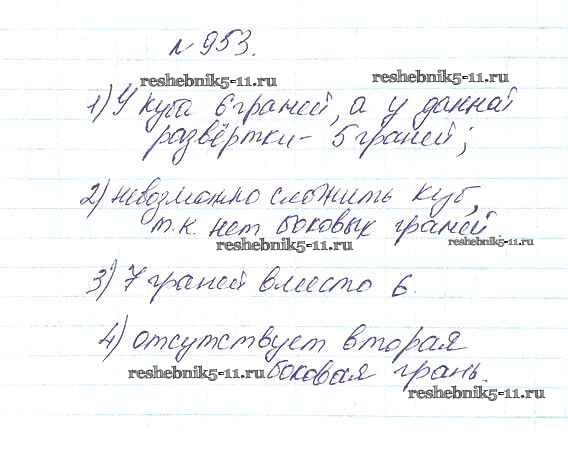 №953.
reshebnik5-11.ru
reshebnik5-11.ru
1) У куба 6 граней, а у данной
развёртки - 5 граней;
2) невозможно сложить куб,
т.к. нет боковых граней
reshebnik5-11.ru
reshebnik5-11.ru
3) 7 граней вместо 6.
4) отсутствует вторая
боковая грань.
reshebnik5-11.ru
reshebnik5-11.ru